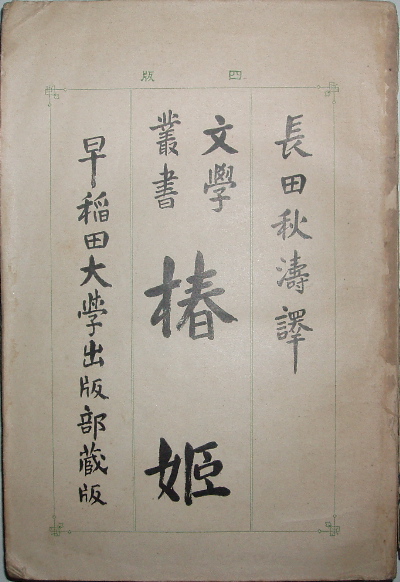 四版
長田秋濤譯
文學
叢書
椿姬
早稲田大学出版部蔵版